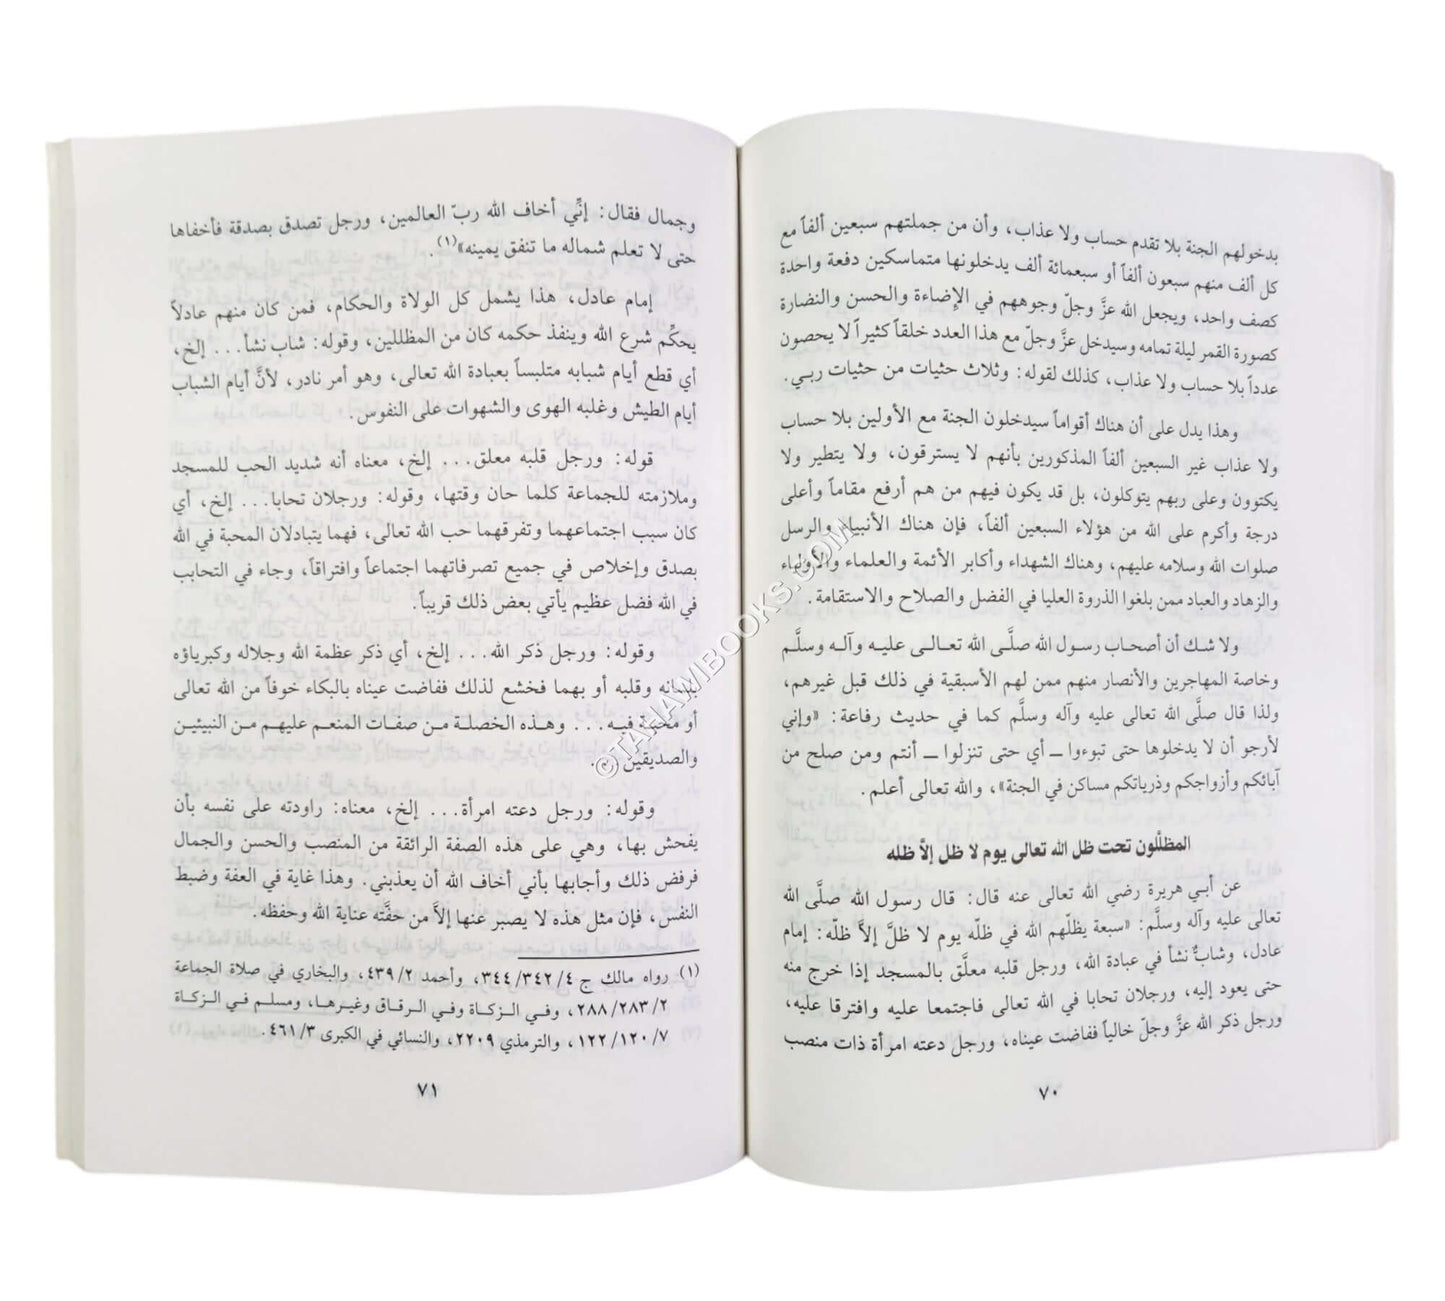 بدخولهم الجنة بلا تقدم حساب ولا عذاب، وأن من جملتهم سبعين ألفاً مع
كل ألف منهم سبعون ألفاً أو سبعمائة ألف يدخلونها متماسكين دفعة واحدة
كصف واحد، ويجعل الله عزَّ وجلّ وجوههم في الإضاءة والحسن والنضارة
كصورة القمر ليلة تمامه وسيدخل عزَّ وجلّ مع هذا العدد خلقاً كثيراً لا يحصون
عدداً بلا حساب ولا عذاب، كذلك لقوله: وثلاث حثيات من حثيات ربـي.
وهذا يدل على أن هناك أقواماً سيدخلون الجنة مع الأولين بلا حساب
ولا عذاب غير السبعين ألفاً المذكورين بأنهم لا يسترقون، ولا يتطير ولا
يكتوون وعلى ربهم يتوكلون، بل قد يكون فيهم من هم أرفع مقاماً وأعلى
درجة وأكرم على الله من هؤلاء السبعين ألفاً، فإن هناك الأنبياء والرسل
صلوات الله وسلامه عليهم، وهناك الشهداء وأكابر الأئمة والعلماء والأولياء
والزهاد والعباد ممن بلغوا الذروة العليا في الفضل والصلاح والاستقامة.
ولا شك أن أصحاب رسول الله صلَّى الله تعالى عليه وآله وسلَّم
وخاصة المهاجرين والأنصار منهم ممن لهم الأسبقية في ذلك قبل غيرهم،
ولذا قال صلَّى الله تعالى عليه وآله وسلَّم كما في حديث رفاعة: «وإني
لأرجو أن لا يدخلوها حتى تبوءوا ـ أي حتى تنزلوا ـ أنتم ومن صلح من
آبائكم وأزواجكم وذرياتكم مساكن في الجنة»، والله تعالى أعلم.
المظلَّلون تحت ظل الله تعالى يوم لا ظل إلاَّ ظله
عن أبـي هريرة رضي الله تعالى عنه قال: قال رسول الله صلَّى الله
تعالى عليه وآله وسلَّم: «سبعة يظلّهم الله في ظلّه يوم لا ظلَّ إلاَّ ظلّه: إمام
عادل، وشابٌ نشأ في عبادة الله، ورجل قلبه معلَّق بالمسجد إذا خرج منه
حتى يعود إليه، ورجلان تحابا في الله تعالى فاجتمعا عليه وافترقا عليه،
ورجل ذكر الله عزَّ وجلّ خالياً ففاضت عيناه، ورجل دعته امرأة ذات منصب
٧٠
وجمال فقال: إنِّي أخاف الله ربّ العالمين، ورجل تصدق بصدقة فأخفاها
حتى لا تعلم شماله ما تنفق يمينه»(١).
إمام عادل، هذا يشمل كل الولاة والحكام، فمن كان منهم عادلاً
يحكُم شرع الله وينفذ حكمه كان من المظللين، وقوله: شاب نشأ... إلخ،
أي قطع أيام شبابه متلبساً بعبادة الله تعالى، وهو أمر نادر، لأنَّ أيام الشباب
أيام الطيش وغلبه الهوى والشهوات على النفوس.
قوله: ورجل قلبه معلق... إلخ، معناه أنه شديد الحب للمسجد
وملازمته للجماعة كلما حان وقتها، وقوله: ورجلان تحابا... إلخ، أي
كان سبب اجتماعهما وتفرقهما حب الله تعالى، فهما يتبادلان المحبة في الله
بصدق وإخلاص في جميع تصرفاتهما اجتماعاً وافتراقاً، وجاء في التحابب
في الله فضل عظيم يأتي بعض ذلك قريباً.
وقوله: ورجل ذكر الله... إلخ، أي ذكر عظمة الله وجلاله وكبرياؤه
بلسانه وقلبه أو بهما فخشع لذلك ففاضت عيناه بالبكاء خوفاً من الله تعالى
أو محبة فيه... وهذه الخصلة من صفات المنعم عليهم من النبيئين
والصديقين
وقوله: ورجل دعته امرأة... إلخ، معناه: راودته على نفسه بأن
يفحش بها، وهي على هذه الصفة الرائقة من المنصب والحسن والجمال
فرفض ذلك وأجابها بأني أخاف الله أن يعذبني. وهذا غاية في العفة وضبط
النفس، فإن مثل هذه لا يصبر عنها إلاَّ من حفَّته عناية الله وحفظه.
(١) رواه مالك ج ٣٤٤/٣٤٢/٤، وأحمد ٤٣٩/٢، والبخاري في صلاة الجماعة
٢٨٨/٢٨٣/٢، وفي الزكاة وفي الرقاق وغيرها، ومسلم في الزكاة
١٢٢/١٢٠/٧، والترمذي ٢٢٠٩، والنسائي في الكبرى ٤٦١/٣.
٧١
©TAHAWIBOOKS.COM